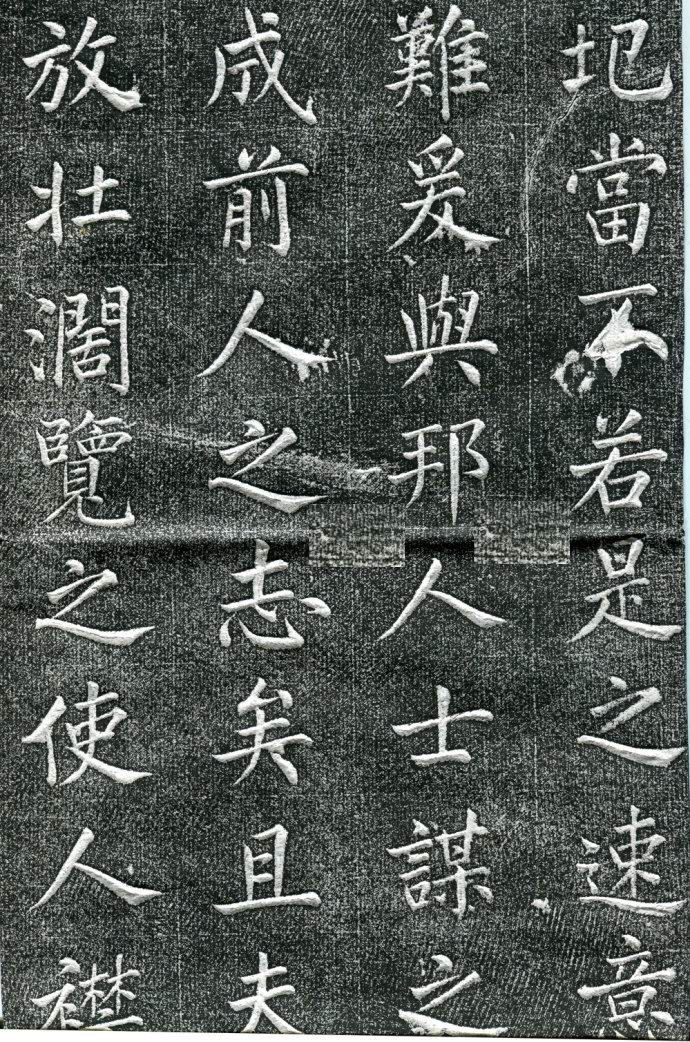 圯當不若是之速意
難爰與邦人士謀之
成前人之志矣且夫
放壯濶覽之使人襟